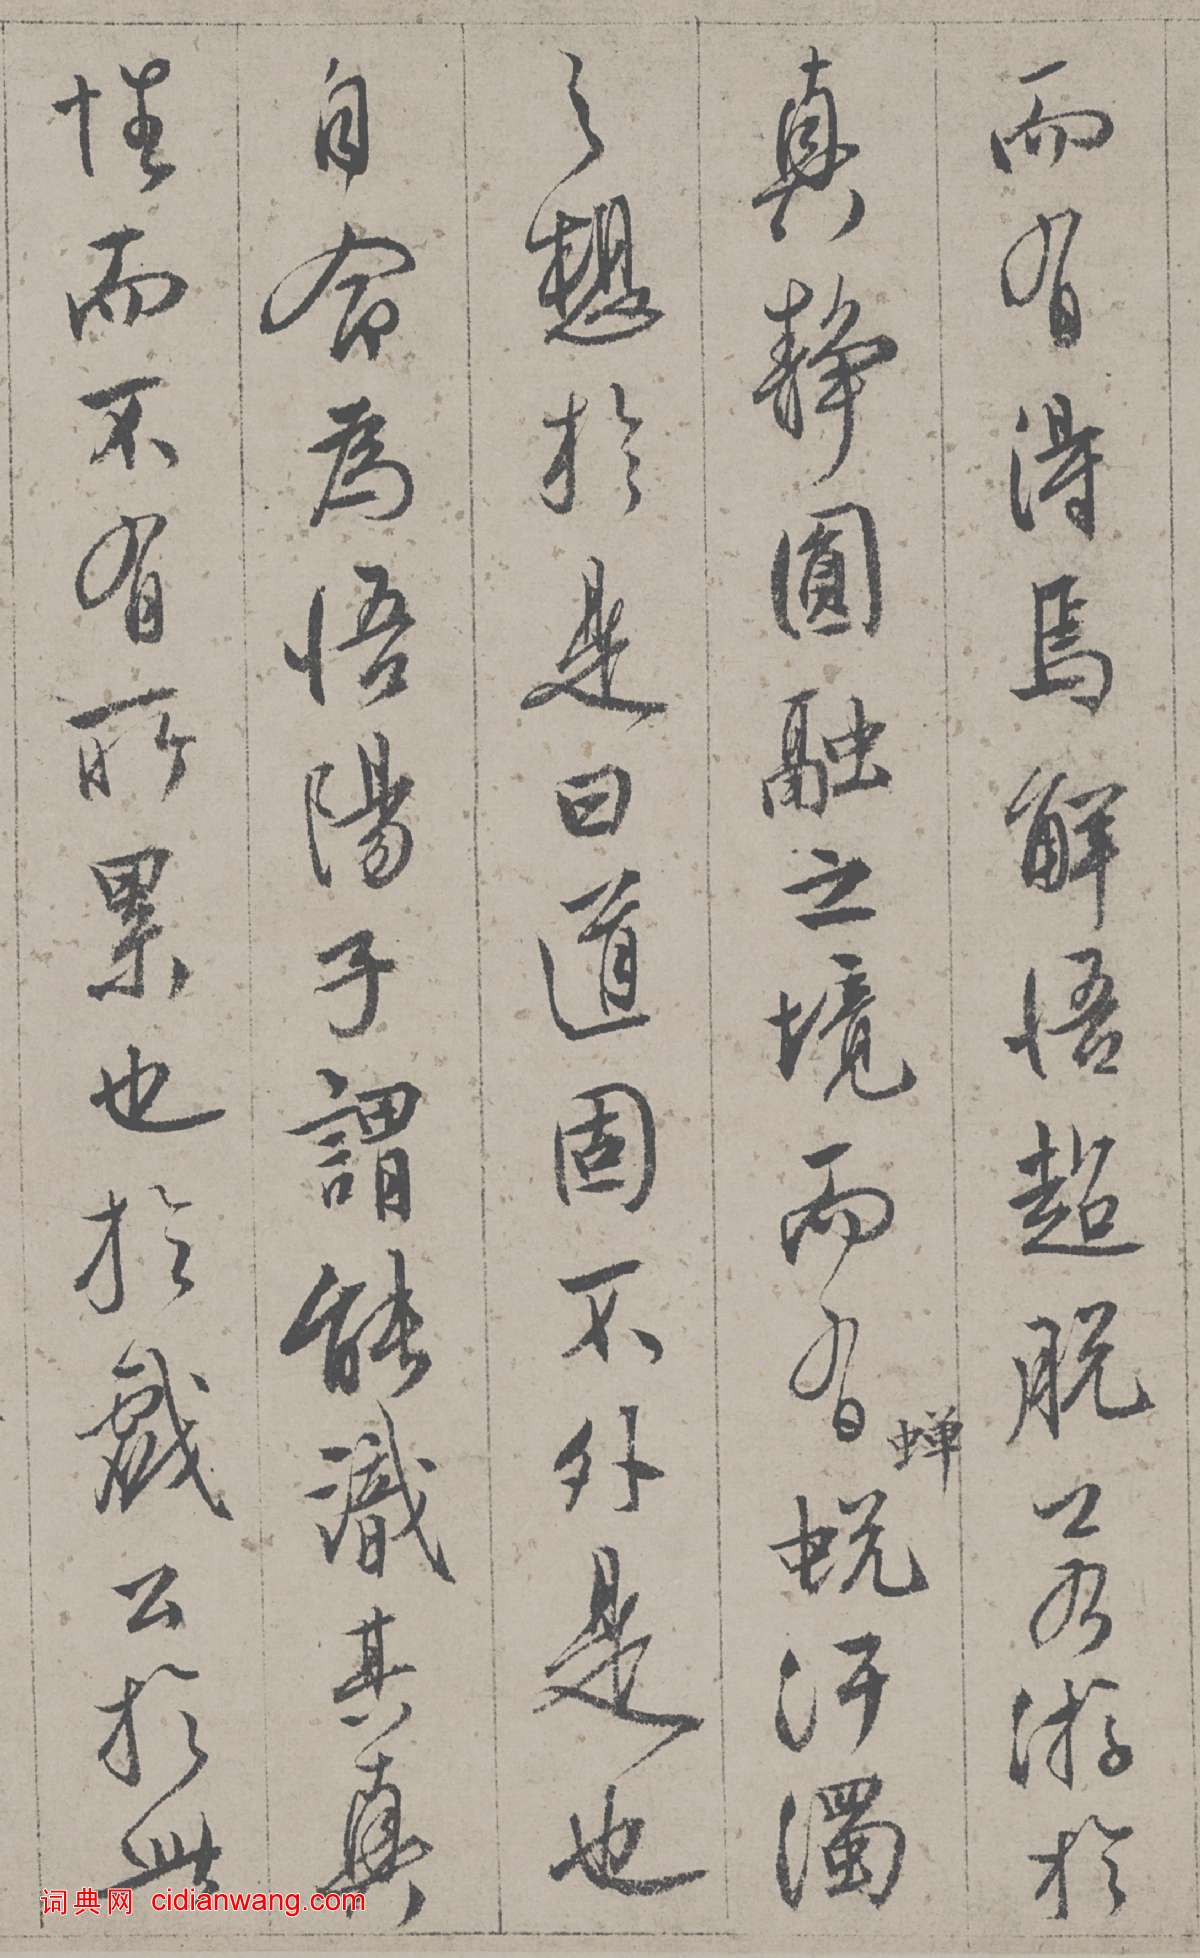 而有得焉解悟超脱又若游於
真静圓融之境而有蝉蜕汙濁
之想於是曰道固不外是也
自命為悟陽子謂能識其真
性而不有所累也於戲公於此
词典网 cidianwang.com